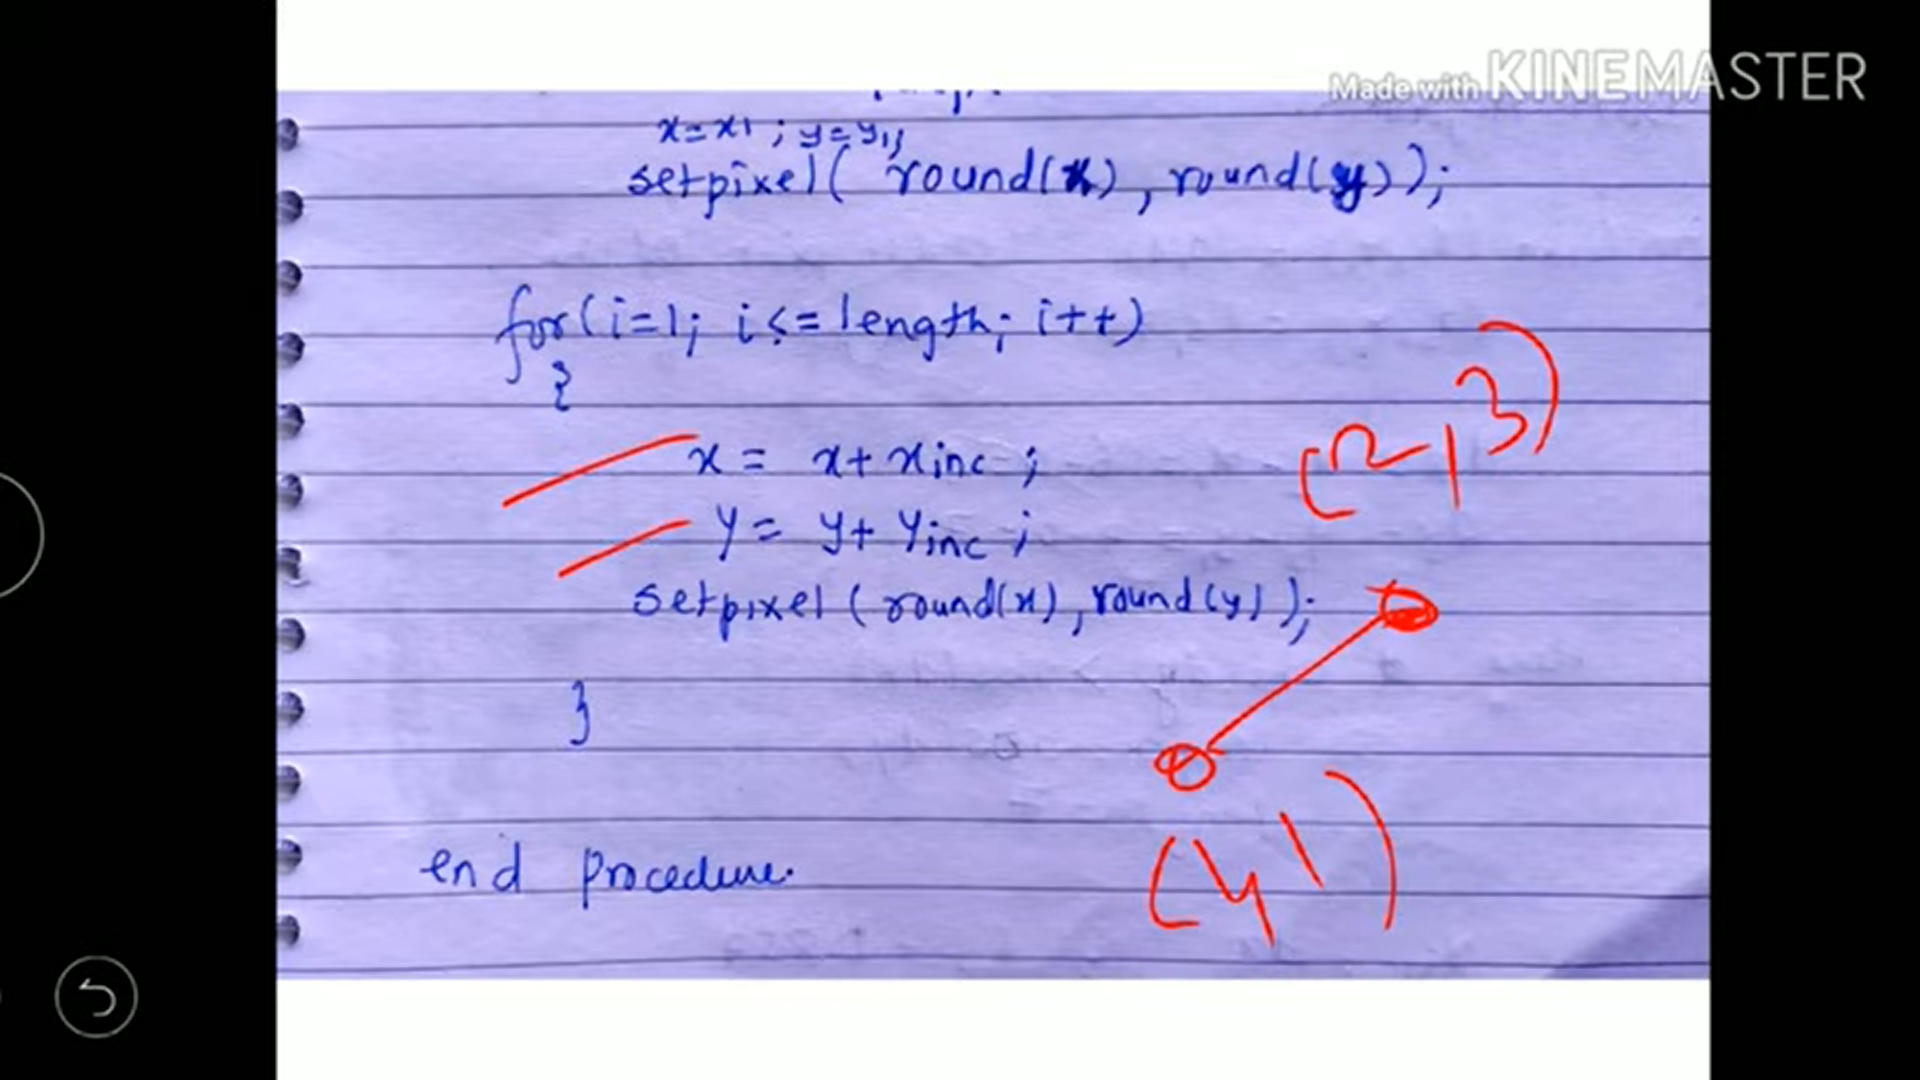 Made with KINEMASTER
x=x1 ; y=y1;
setpixel( round(x) , round(y));
for(i=1; i<=length; i++)
{
x = x+xinc ;
y = y+yinc ;
setpixel ( round(x) , round(y) );
}
end procedure.
(2,3)